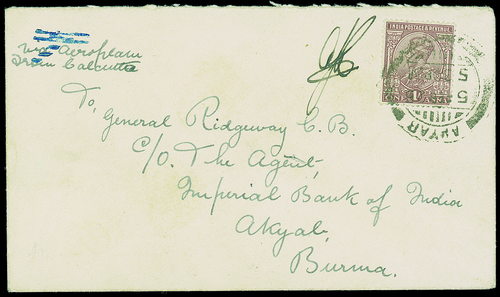 via Aeroplam
From Calcutta
INDIA POSTAGE & REVENUE
ANNA
AKYAB
To,
General Ridgeway C.B.
C/O. The Agent,
Imperial Bank of India
Akyab,
Burma.